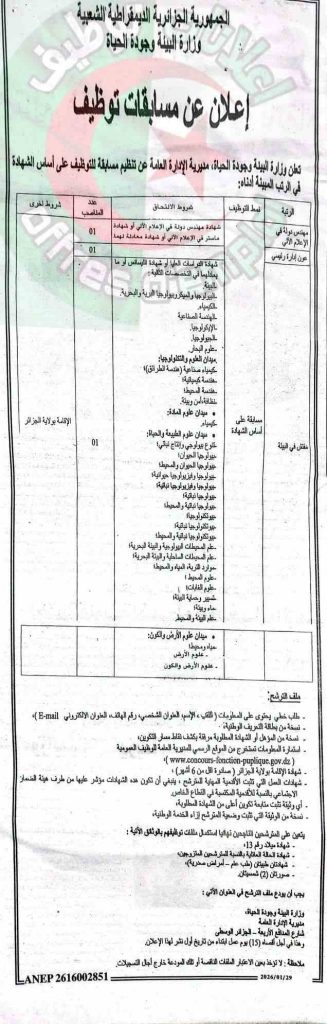 الجمهورية الجزائرية الديمقراطية الشعبية
وزارة البيئة وجودة الحياة
إعلان عن مسابقات توظيف
تعلن وزارة البيئة وجودة الحياة، مديرية الإدارة العامة عن تنظيم مسابقة للتوظيف على أساس الشهادة
في الرتب المبينة أدناه:
الرتبة
نمط التوظيف
شروط الالتحاق
عدد المناصب
شروط أخرى
مهندس دولة في الإعلام الآلي
شهادة مهندس دولة في الإعلام الآلي أو شهادة
ماستر في الإعلام الآلي أو شهادة معادلة لهما
01
عون إدارة رئيسي
01
مفتش في البيئة
مسابقة على أساس الشهادة
شهادة الدراسات العليا أو شهادة الليسانس أو ما
يعادلهما في التخصصات التالية:
-البيئة.
-البيولوجيا والميكروبيولوجيا البرية والبحرية.
-الكيمياء.
-الهندسة الصناعية
-الإيكولوجيا.
-الجيولوجيا.
- علوم البحار.
-ميدان العلوم والتكنولوجيا:
-كيمياء صناعية (هندسة الطرائق)؛
-هندسة كيميائية؛
-هندسة المحيط؛
-نظافة وأمن وبيئة.
ميدان علوم المادة:
-كيمياء.
ميدان علوم الطبيعة والحياة:
-تنوع بيولوجي وإنتاج نباتي؛
-بيولوجيا الحيوان؛
-بيولوجيا الحيوان والمحيط؛
-بيولوجيا وفيزيولوجيا حيوانية؛
-بيولوجيا وفيزيولوجيا نباتية؛
-بيولوجيا نباتية؛
-بيولوجيا نباتية والمحيط؛
-بيوتكنولوجيا؛
-بيوتكنولوجيا نباتية؛
-بيوتكنولوجيا نباتية والمحيط؛
-علم المحيطات البيولوجية والبيئة البحرية؛
-علم المحيطات الساحلية والبيئة البحرية؛
-موارد التربة، المياه والمحيط؛
-علوم المحيط؛
-علوم الغابات؛
-تسيير وحماية البيئة؛
-ماء وبيئة؛
-علم البيئة والمحيط
01
الإقامة بولاية الجزائر
ميدان علوم الأرض والكون:
-مياه ومحيط؛
- علوم الأرض
- علوم الأرض والكون
ملف الترشح:
- طلب خطي يحتوي على المعلومات ( اللقب، الإسم، العنوان الشخصي، رقم الهاتف، العنوان الالكتروني E-mail )،
- نسخة من بطاقة التعريف الوطنية،
- نسخة من المؤهل أو الشهادة المطلوبة مرفقة بكشف نقاط مسار التكوين،
- استمارة المعلومات تستخرج من الموقع الرسمي للمديرية العامة للوظيف العمومية
( www.concours-fonction-puplique.gov.dz )
- شهادة الإقامة بولاية الجزائر ( صادرة أقل من 6 أشهر )
- شهادات العمل التي تثبت الأقدمية المهنية للمترشح ، ينبغي أن تكون هذه الشهادات مؤشر عليها من طرف هيئة الضمان
الاجتماعي بالنسبة للأقدمية المكتسبة في القطاع الخاص
- أي وثيقة تثبت متابعة تكوين أعلى من الشهادة المطلوبة،
- نسخة من الوثيقة التي تثبت وضعية المترشح إزاء الخدمة الوطنية،
يتعين على المترشحين الناجحين نهائيا استكمال ملفات توظيفهم بالوثائق الآتية :
- شهادة ميلاد رقم 13،
- شهادة الحالة العائلية بالنسبة للمترشحين المتزوجين،
- شهادتان طبيتان (طب عام – أمراض صدرية)،
- صورتان (2) شمسيتان.
يجب أن يودع ملف الترشح في العنوان الآتي :
وزارة البيئة وجودة الحياة،
مديرية الإدارة العامة،
شارع المنافع الأربعة - الجزائر الوسطى
وهذا في أجل أقصاه (15) يوم عمل ابتداء من تاريخ أول نشر لهذا الإعلان
ملاحظة : لا تؤخذ بعين الاعتبار الملفات الناقصة أو تلك المودعة خارج أجال التسجيلات.
2026/01/29
ANEP 2616002851